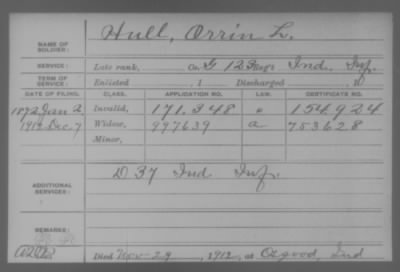 NAME OF SOLDIER: Hull, Orrin L.
SERVICE: Late rank, Co. G 123 Reg't Ind. Inf.
TERM OF SERVICE: Enlisted , 1 Discharged , 1
DATE OF FILING. CLASS. APPLICATION NO. LAW. CERTIFICATE NO.
1872 Jan 2, Invalid, 171.348 " 154.924
1912 Dec. 7 Widow, 997639 a 753628
Minor,
ADDITIONAL SERVICES: D 37 Ind Inf.
REMARKS:
Died Nov-29, 1912, at Osgood, Ind